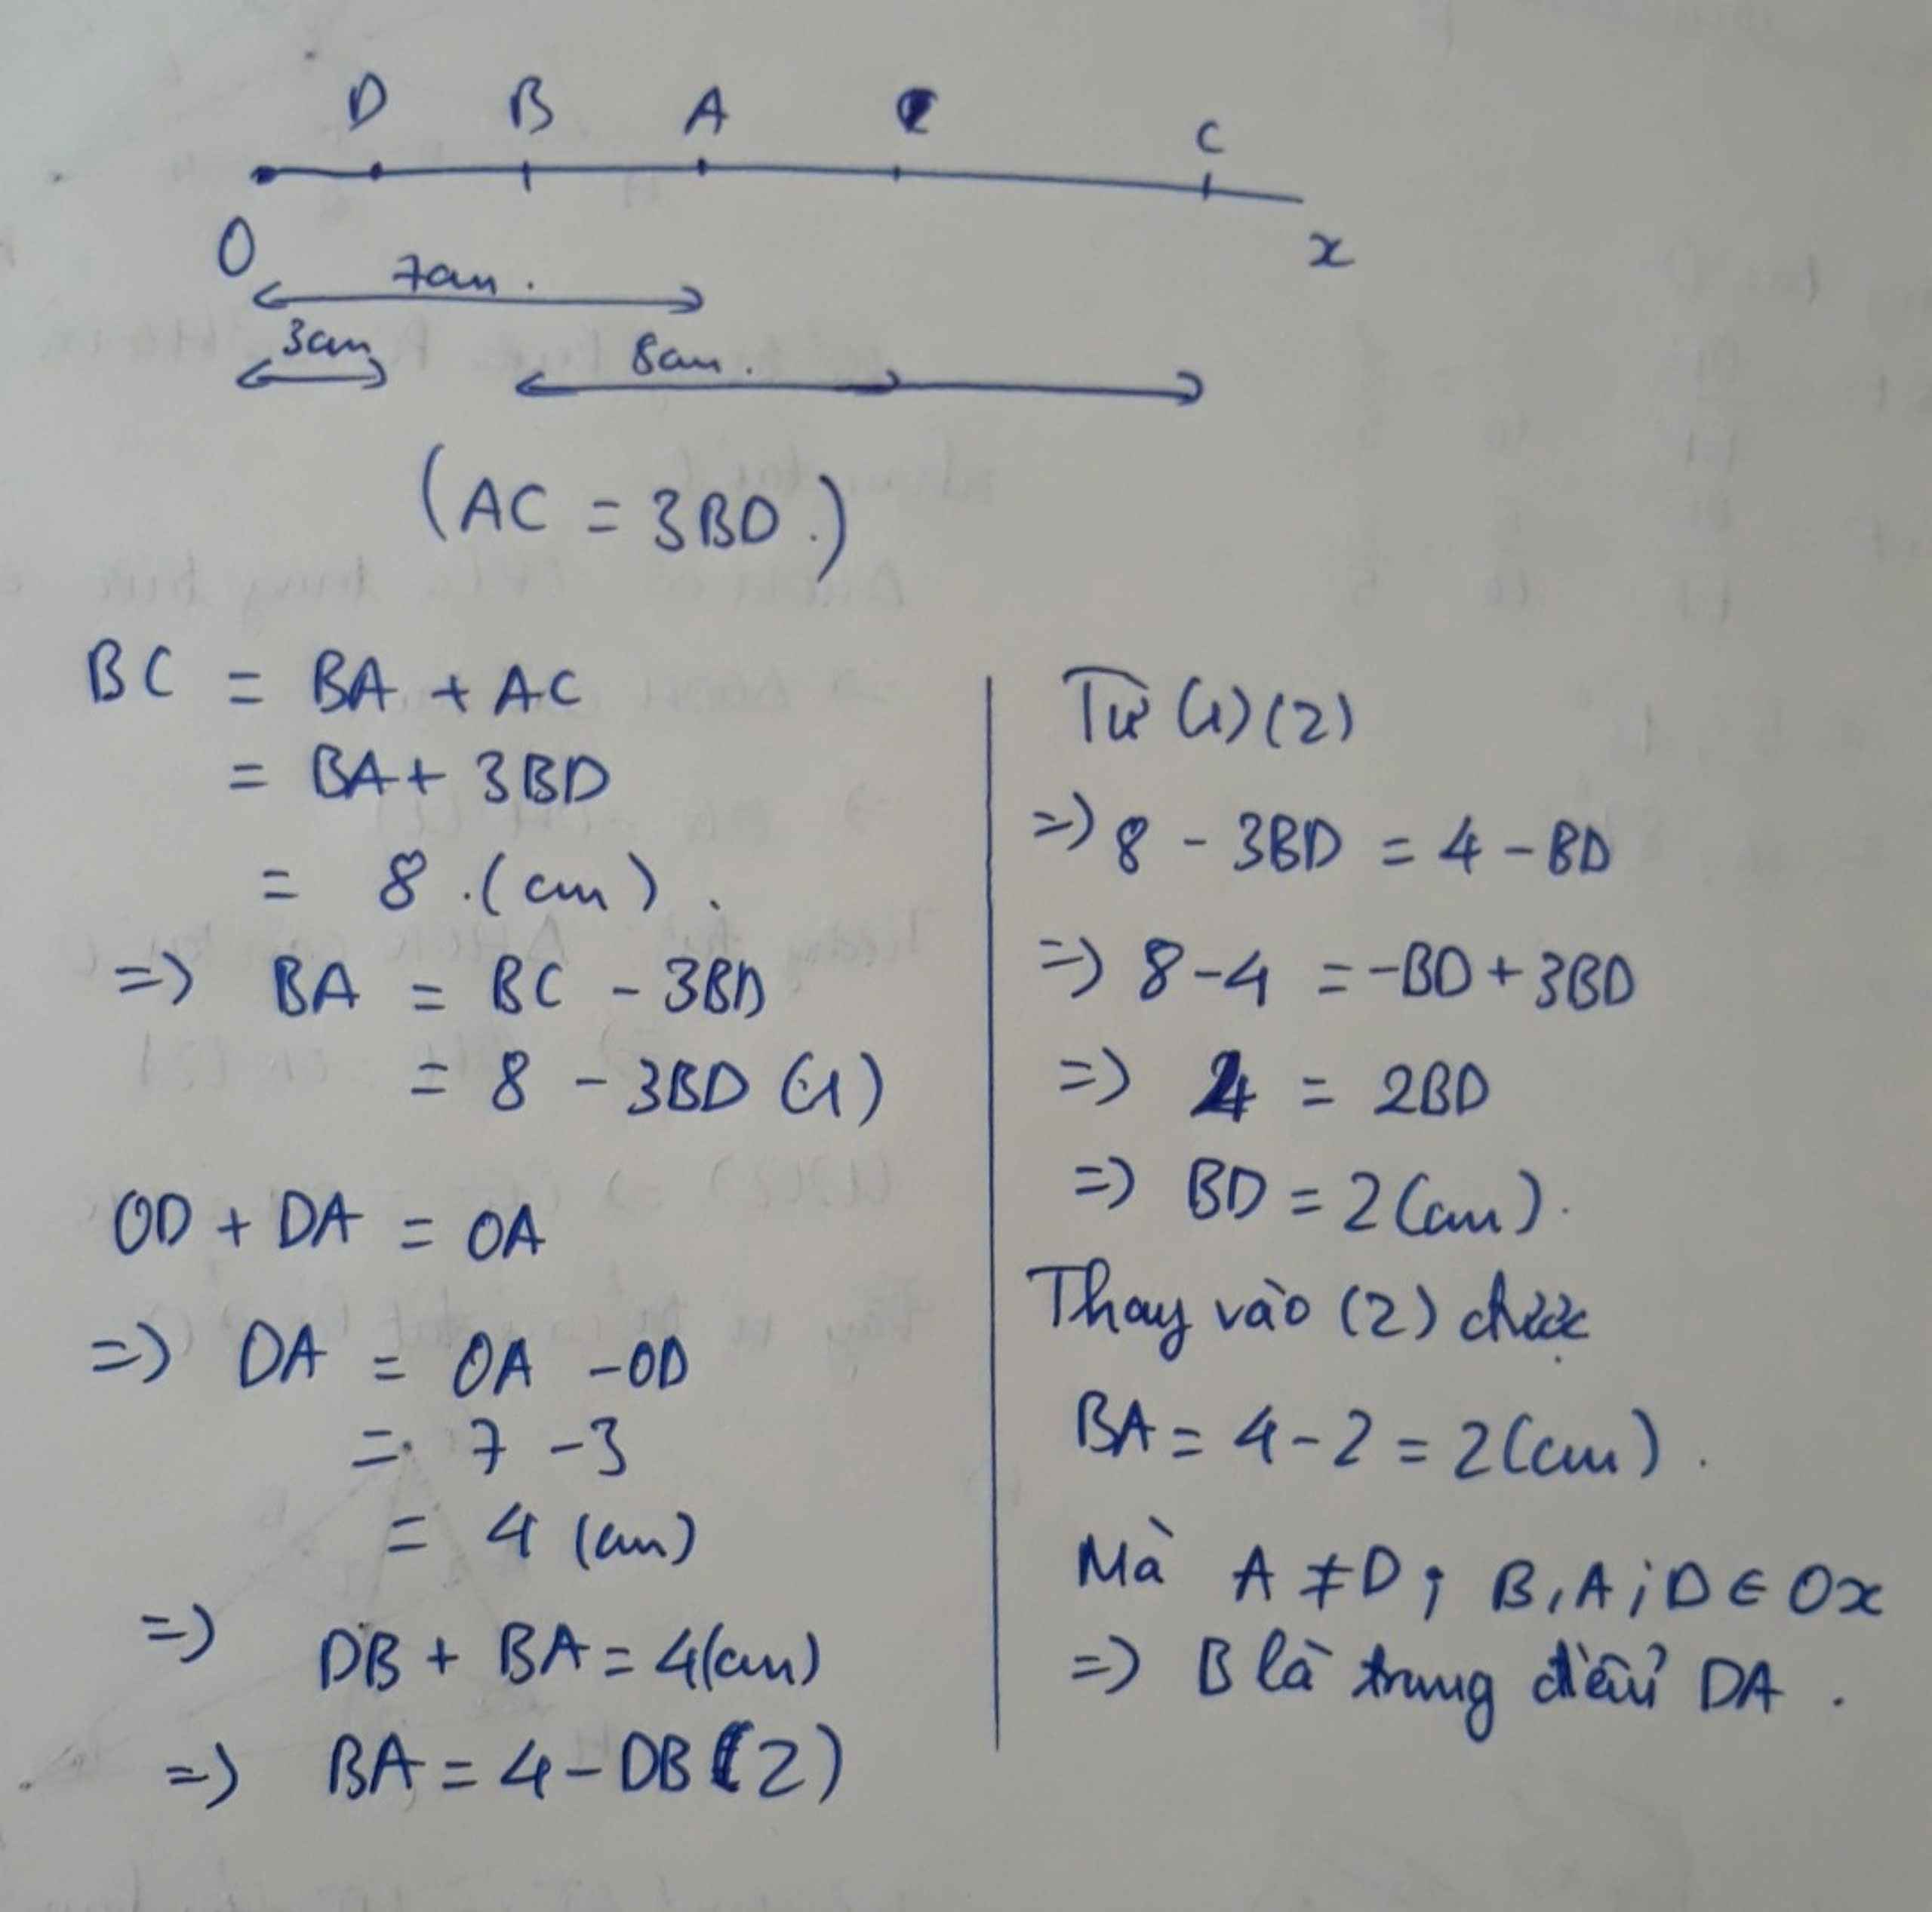 D B A C
O x
7cm.
3cm 8cm.
(AC = 3BD.)
BC = BA + AC
= BA + 3BD
= 8 .(cm).
=> BA = BC - 3BD
= 8 - 3BD (1)
OD + DA = OA
=> DA = OA - OD
= 7 - 3
= 4 (cm)
=> DB + BA = 4(cm)
=> BA = 4 - DB (2)
Từ (1) (2)
=> 8 - 3BD = 4 - BD
=> 8 - 4 = -BD + 3BD
=> 4 = 2BD
=> BD = 2 (cm).
Thay vào (2) được
BA = 4 - 2 = 2 (cm).
Mà A ≠ D ; B, A ; D ∈ Ox
=> B là trung điểm DA .